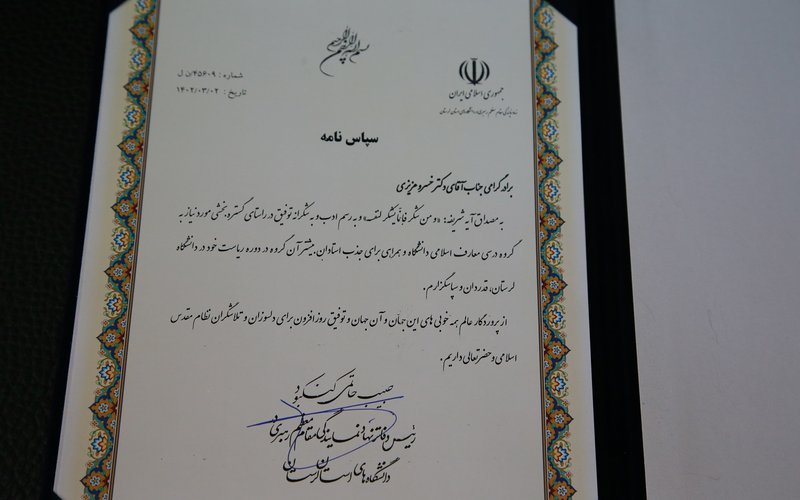 بسم الله الرحمن الرحیم
جمهوری اسلامی ایران
نهاد نمایندگی مقام معظم رهبری در دانشگاه‌های استان لرستان
شماره : ۴۵۶۰۹/ن ل
تاریخ : ۱۴۰۲/۰۳/۰۲
سپاس نامه
برادر گرامی جناب آقای دکتر خسرو عزیزی
به مصداق آیه شریفه: «و من شکر فانّما یشکر لنفسه» و به رسم ادب و به شکرانه توفیق در راستای گستره بخشی مورد نیاز به
گروه درسی معارف اسلامی دانشگاه و همراهی برای جذب استادان بیشتر آن گروه در دوره ریاست خود در دانشگاه
لرستان، قدردان و سپاسگزارم.
از پروردگار عالم همه خوبی های این جهان و آن جهان و توفیق روزافزون برای دلسوزان و تلاشگران نظام مقدس
اسلامی و حضرتعالی داریم.
حبیب حاتمی کنکبود
رئیس دفاتر نهاد نمایندگی مقام معظم رهبری در
دانشگاه های استان لرستان